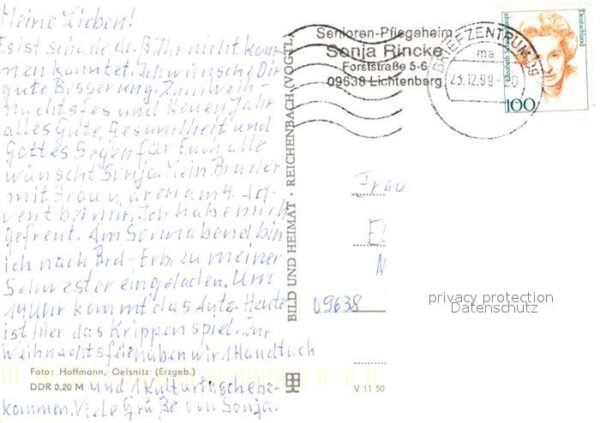 Meine Lieben!
Es ist schade daß Ihr nicht kom-
men konntet. Ich wünsche Dir
gute Besserung. Zum Weih-
nachtsfest und Neuen Jahr
alles Gute, Gesundheit und
Gottes Segen für Euch alle
wünscht Sonja. Mein Bruder
mit Frau waren am 4. Ad-
vent bei mir. Ich habe mich
gefreut. Am Sonnabend bin
ich nach Brd.-Erb. zu meiner
Schwester eingeladen. Um
14 Uhr kommt das Auto. Heute
ist hier das Krippenspiel. Zur
Weihnachtsfeier haben wir 1 Handtuch
und 1 Kulturtasche be-
kommen. Viele Grüße von Sonja.
Foto: Hoffmann, Oelsnitz (Erzgeb.)
DDR 0,20 M
BILD UND HEIMAT · REICHENBACH (VOGTL)
V 11 50
Senioren-Pflegeheim
Sonja Rincke
Forststraße 5-6
09638 Lichtenberg
BRIEFZENTRUM 09
ma
Deutschland
100
Frau
09638
privacy protection
Datenschutz